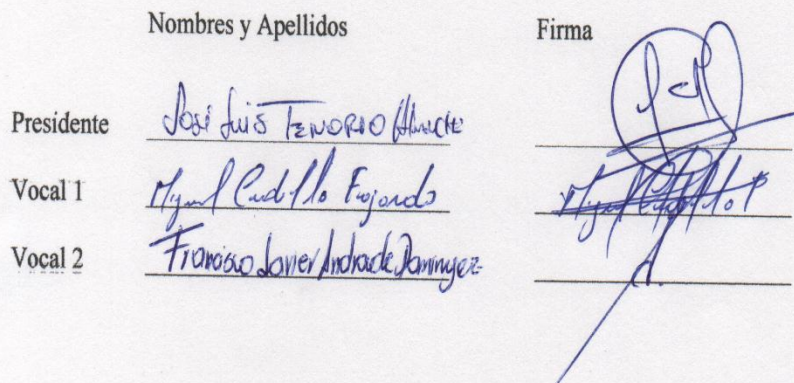 Nombres y Apellidos Firma
Presidente José Luis TENORIO
Vocal 1 Miguel Cudillo Fajardo
Vocal 2 Francisco Javier Andrade Dominguez